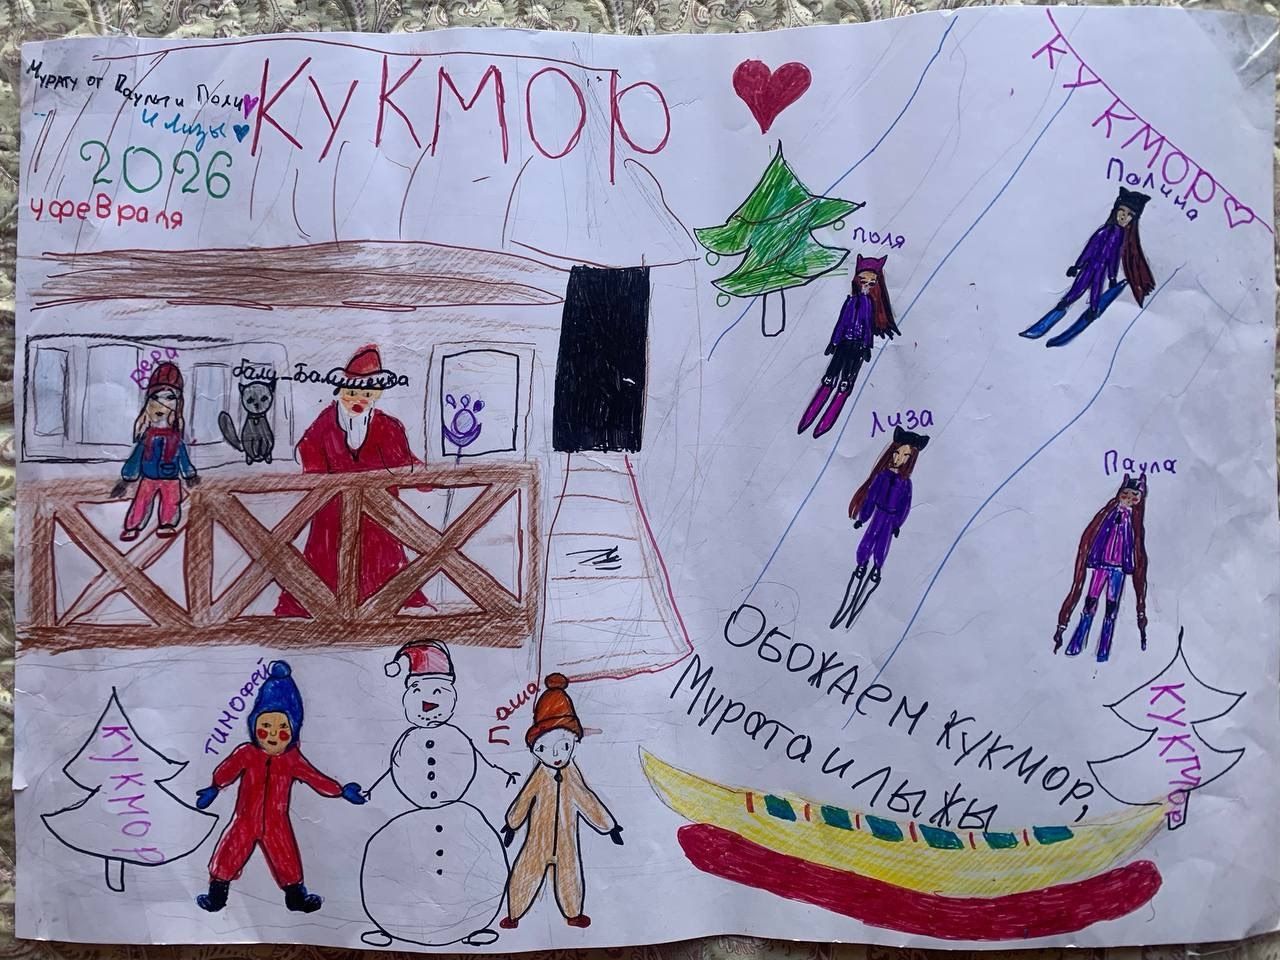 Мурату от Паулы и Поли
и Лизы
2026
4 февраля
КУКМОР
КУКМОР
Полина
Поля
Лиза
Паула
Вера
Балу-Балушечка
Тимофей
Паша
КУКМОР
ОБОЖАЕМ КУКМОР,
Мурата и ЛЫЖЫ
КУКМОР